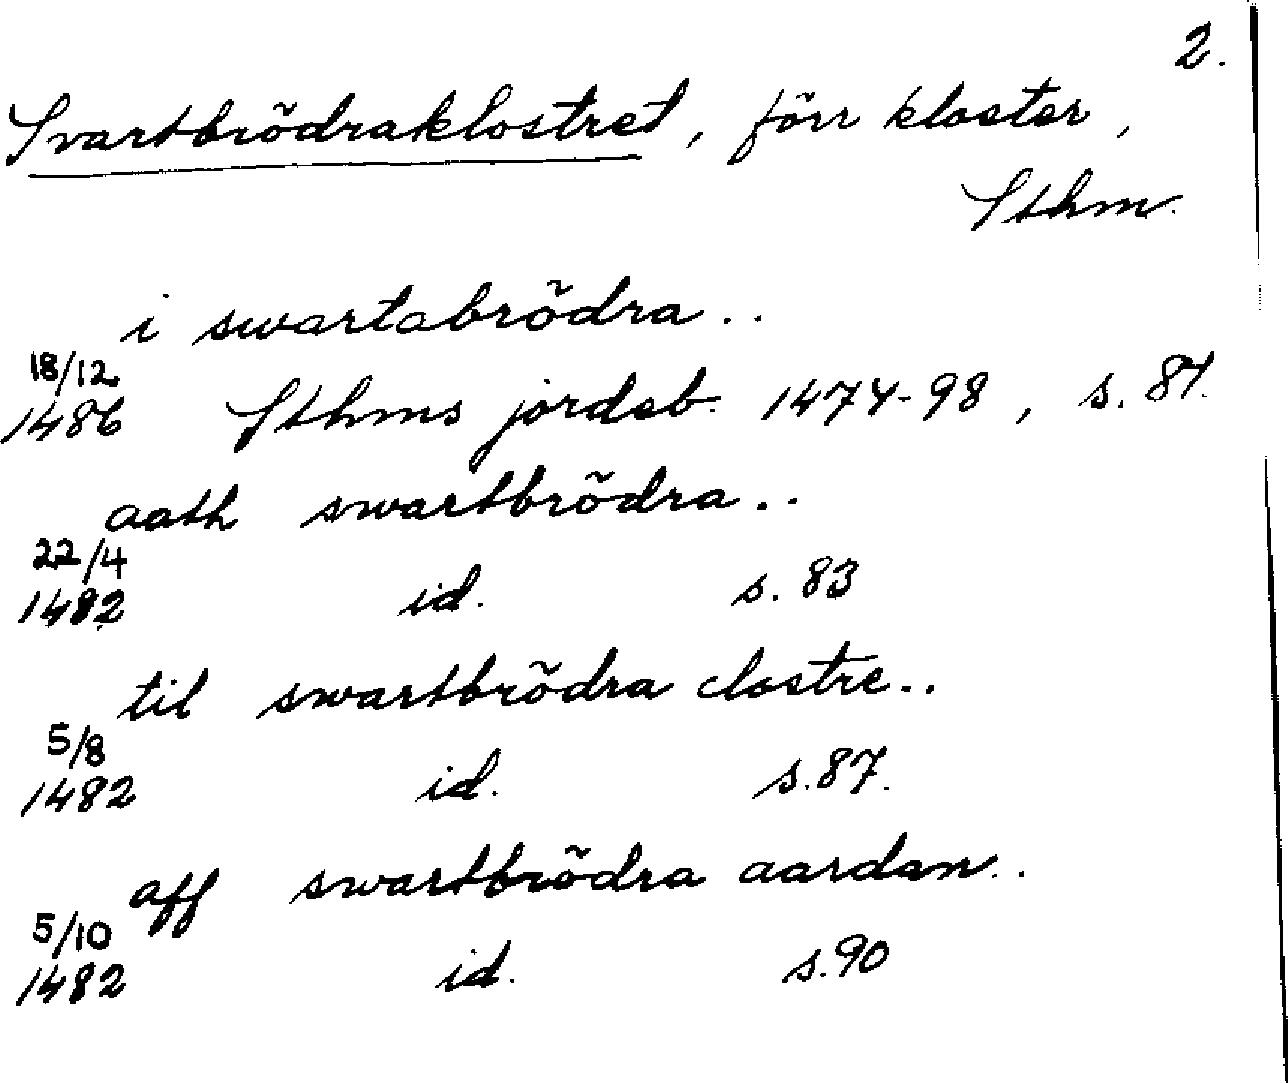 2.
Svartbrödraklostret, förr kloster,
Sthm.
i swartabrödra..
18/12
1486 Sthms jordeb. 1474-98, s. 81.
aath swartbrödra..
22/4
1482 id. s. 83
til swartbrödra clostre..
5/8
1482 id. s.87.
aff swartbrödra aardan..
5/10
1482 id. s.90